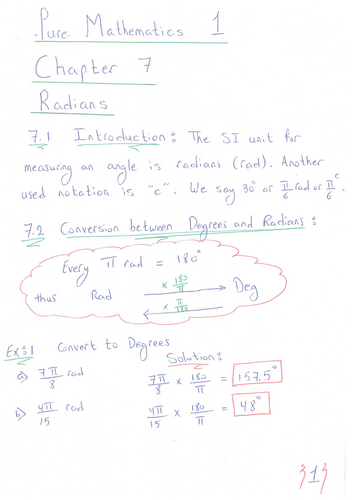 Pure Mathematics 1
Chapter 7
Radians
7.1 Introduction : The SI unit for
measuring an angle is radians (rad). Another
used notation is "c". We say 30° or π/6 rad or π/6 ᶜ.
7.2 Conversion between Degrees and Radians :
Every π rad = 180°
thus Rad × 180/π Deg
× π/180
Ex:1 Convert to Degrees
Solution:
a) 7π/8 rad 7π/8 × 180/π = 157.5°
b) 4π/15 rad 4π/15 × 180/π = 48°
}1}